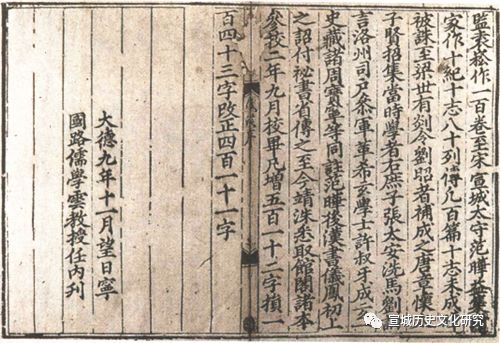 監袁崧作一百卷至宋宣城太守范曄益
家作十紀十志八十列傳凢百篇十志未成
被誅至梁世有剡令劉昭者補成之唐章懷
子賢招集當時學者右庶子張太安洗馬劉
言洛州司戶叅軍革希玄學士許叔牙成玄
史藏諸周寶寧等同註范曄後漢書儀鳳初上
之詔付祕書省傳之至今靖洙悉取館閣諸本
叅校二年九月校畢凡增五百一十二字損一
百四十三字改正四百一十一字
大德九年十一月望日寧
國路儒學雲教授任内刋
宣城历史文化研究